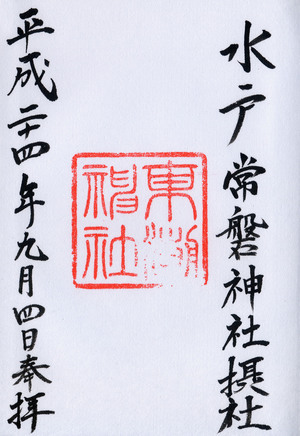 水戸常磐神社摂社
東湖神社
平成二十四年九月四日奉拝